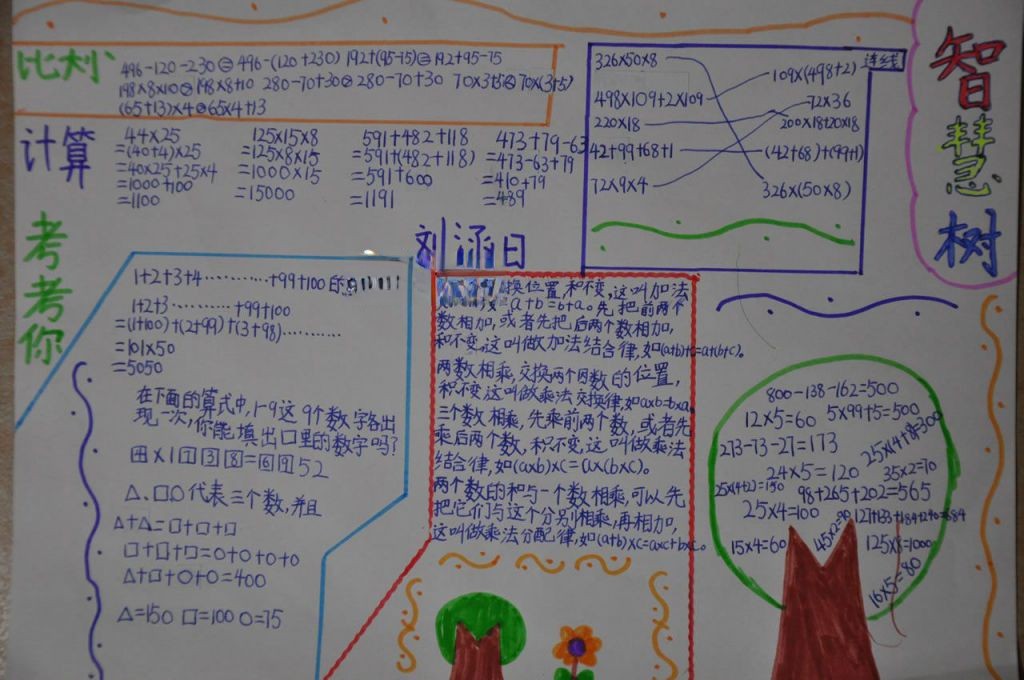 智慧树
比划
496-120-230=496-(120+230) 192+(95-75)=192+95-75
280-70+30 280-70+30
(65+13)×4 65×4+13
计算
44×25
=(40+4)×25
=40×25+25×4
=1000+100
=1100
125×15×8
=125×8×15
=1000×15
=15000
591+482+118
=591+(482+118)
=591+600
=1191
473+79-63
=473-63+79
=410+79
=489
连线
326×50×8
498×109+2×109
220×18
42+99+68+1
72×9×4
109×(498+2)
72×36
200×18+20×18
(42+68)+(99+1)
326×(50×8)
考考你
1+2+3+4…………+99+100的
1+2+3…………+99+100
=(1+100)+(2+99)+(3+98)…………
=101×50
=5050
在下面的算式中,1-9这9个数字各出
现一次,你能填出口里的数字吗?
4×1738=6952
△、□○代表三个数,并且
△+△=□+□+□
□+□+□=○+○+○+○
△+□+○+○=400
△=150 □=100 ○=75
换位置,和不变,这叫加法
a+b=b+a。先把前两个
数相加,或者先把后两个数相加,
和不变,这叫做加法结合律,如(a+b)+c=a+(b+c)。
两数相乘,交换两个因数的位置,
积不变这叫做乘法交换律,如a×b=b×a。
三个数相乘,先乘前两个数,或者先
乘后两个数,积不变,这叫做乘法
结合律,如(a×b)×c=a×(b×c)。
两个数的和与一个数相乘,可以先
把它们与这个分别相乘,再相加,
这叫做乘法分配律,如(a+b)×c=a×c+b×c。
800-138-162=500
12×5=60 5×99+5=500
273-73-27=173 25×4+8=300
24×5=120 35×2=70
25×(4+2)=150 98+265+202=565
25×4=100 45×2=90
15×4=60 125×8=1000
16×5=80